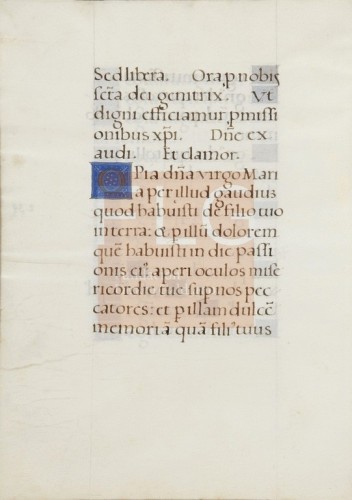 Sed libera. Ora p nobis
scta dei genitrix. Vt
digni efficiamur pmissi
onibus xpi. Dne ex
audi. Et clamor.
O Pia dna virgo Mari
a per illud gaudiu
quod habuisti de filio tuo
in terra: et p illu dolorem
que habuisti in die passi
onis ei⁹: aperi oculos mise
ricordie tue sup nos pec
catores: et p illam dulce
memoria qua fili⁹ tuus